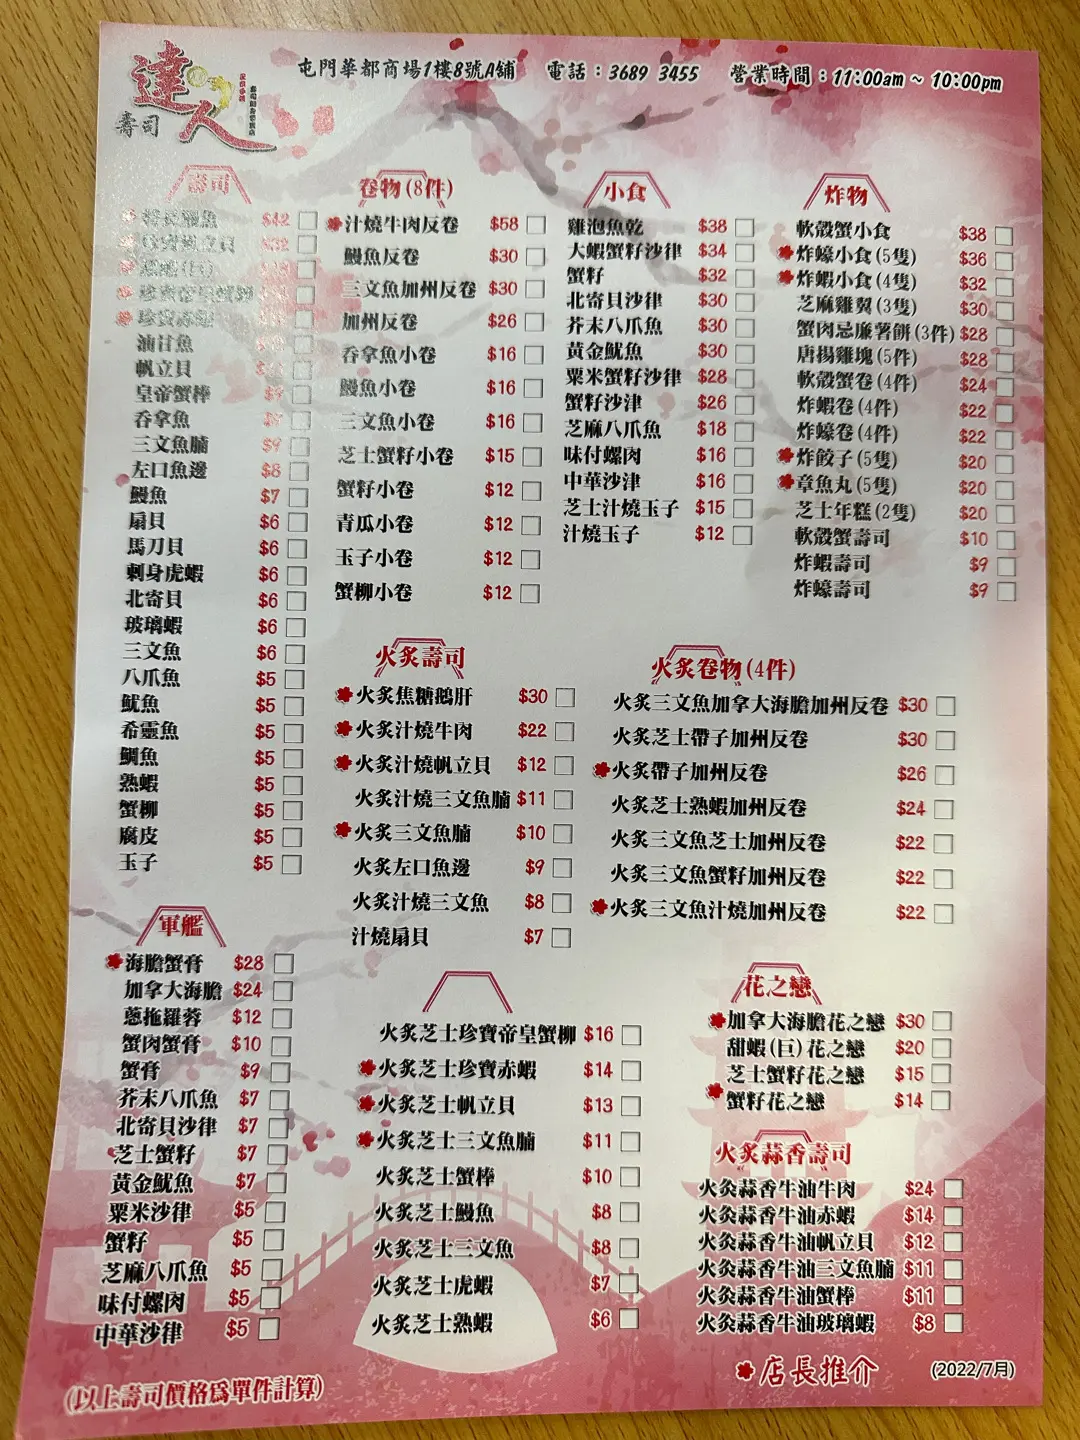 達人
壽司
屯門華都商場1樓8號A舖 電話：3689 3455 營業時間：11:00am ~ 10:00pm
壽司
$42
珍寶帆立貝 $32
珍寶帝皇蟹柳
珍寶赤蝦
油甘魚
帆立貝
皇帝蟹棒 $9
吞拿魚
三文魚腩 $9
左口魚邊 $8
鰻魚 $7
扇貝 $6
馬刀貝 $6
刺身虎蝦 $6
北寄貝 $6
玻璃蝦 $6
三文魚 $6
八爪魚 $5
魷魚 $5
希靈魚 $5
鯛魚 $5
熟蝦 $5
蟹柳 $5
腐皮 $5
玉子 $5
卷物(8件)
汁燒牛肉反卷 $58
鰻魚反卷 $30
三文魚加州反卷 $30
加州反卷 $26
吞拿魚小卷 $16
鰻魚小卷 $16
三文魚小卷 $16
芝士蟹籽小卷 $15
蟹籽小卷 $12
青瓜小卷 $12
玉子小卷 $12
蟹柳小卷 $12
小食
雞泡魚乾 $38
大蝦蟹籽沙律 $34
蟹籽 $32
北寄貝沙律 $30
芥末八爪魚 $30
黃金魷魚 $30
粟米蟹籽沙律 $28
蟹籽沙津 $26
芝麻八爪魚 $18
味付螺肉 $16
中華沙津 $16
芝士汁燒玉子 $15
汁燒玉子 $12
炸物
軟殼蟹小食 $38
炸蠔小食(5隻) $36
炸蝦小食(4隻) $32
芝麻雞翼(3隻) $30
蟹肉忌廉薯餅(3件) $28
唐揚雞塊(5件) $28
軟殼蟹卷(4件) $24
炸蝦卷(4件) $22
炸蠔卷(4件) $22
炸餃子(5隻) $20
章魚丸(5隻) $20
芝士年糕(2隻) $20
軟殼蟹壽司 $10
炸蝦壽司 $9
炸蠔壽司 $9
火炙壽司
火炙焦糖鵝肝 $30
火炙汁燒牛肉 $22
火炙汁燒帆立貝 $12
火炙汁燒三文魚腩 $11
火炙三文魚腩 $10
火炙左口魚邊 $9
火炙汁燒三文魚 $8
汁燒扇貝 $7
火炙卷物(4件)
火炙三文魚加拿大海膽加州反卷 $30
火炙芝士帶子加州反卷 $30
火炙帶子加州反卷 $26
火炙芝士熟蝦加州反卷 $24
火炙三文魚芝士加州反卷 $22
火炙三文魚蟹籽加州反卷 $22
火炙三文魚汁燒加州反卷 $22
軍艦
海膽蟹膏 $28
加拿大海膽 $24
蔥拖羅蓉 $12
蟹肉蟹膏 $10
蟹膏 $9
芥末八爪魚 $7
北寄貝沙律 $7
芝士蟹籽 $7
黃金魷魚 $7
粟米沙律 $5
蟹籽 $5
芝麻八爪魚 $5
味付螺肉 $5
中華沙律 $5
火炙芝士珍寶帝皇蟹柳 $16
火炙芝士珍寶赤蝦 $14
火炙芝士帆立貝 $13
火炙芝士三文魚腩 $11
火炙芝士蟹棒 $10
火炙芝士鰻魚 $8
火炙芝士三文魚 $8
火炙芝士虎蝦 $7
火炙芝士熟蝦 $6
花之戀
加拿大海膽花之戀 $30
甜蝦(巨)花之戀 $20
芝士蟹籽花之戀 $15
蟹籽花之戀 $14
火炙蒜香壽司
火灸蒜香牛油牛肉 $24
火灸蒜香牛油赤蝦 $14
火灸蒜香牛油帆立貝 $12
火灸蒜香牛油三文魚腩 $11
火灸蒜香牛油蟹棒 $11
火灸蒜香牛油玻璃蝦 $8
店長推介 (2022/7月)
(以上壽司價格爲單件計算)